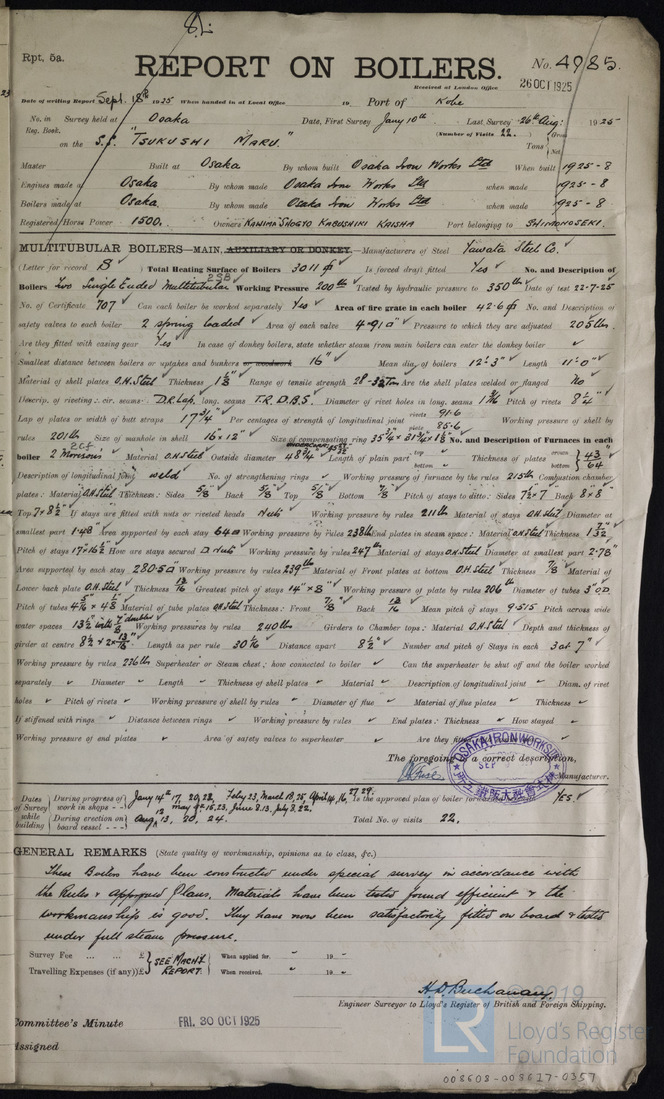 Rpt. 5a.
REPORT ON BOILERS.
No. 4985.
Received at London Office 26 OCT 1925
Date of writing Report Sept. 18th 1925 When handed in at Local Office 19 Port of Kobe
No. in Reg. Book. Survey held at Osaka Date, First Survey Jany 10th Last Survey 26th Aug: 1925
on the S.S. "TSUKUSHI MARU." (Number of Visits 22.) Tons Gross Net
Master Built at Osaka By whom built Osaka Iron Works Ltd When built 1925-8
Engines made at Osaka By whom made Osaka Iron Works Ltd when made 1925-8
Boilers made at Osaka By whom made Osaka Iron Works Ltd when made 1925-8
Registered Horse Power 1500. Owners KAWIMA SHOGYO KABUSHIKI KAISHA Port belonging to SHIMONOSEKI.
MULTITUBULAR BOILERS—MAIN, AUXILIARY OR DONKEY.—Manufacturers of Steel Yawata Steel Co.
(Letter for record S) Total Heating Surface of Boilers 3011 Is forced draft fitted Yes No. and Description of
Boilers Two Single Ended Multitubular 2SB Working Pressure 200 lb Tested by hydraulic pressure to 350 lb Date of test 22-7-25
No. of Certificate 707 Can each boiler be worked separately Yes Area of fire grate in each boiler 42.6 No. and Description of
safety valves to each boiler 2 spring loaded Area of each valve 4.91 Pressure to which they are adjusted 205 lbs.
Are they fitted with easing gear Yes In case of donkey boilers, state whether steam from main boilers can enter the donkey boiler
Smallest distance between boilers or uptakes and bunkers or woodwork 16" Mean dia. of boilers 12'-3" Length 11'-0"
Material of shell plates O.H. Steel Thickness 1 1/8 Range of tensile strength 28-32 Tons Are the shell plates welded or flanged No
Descrip. of riveting: cir. seams D.R. Lap. long. seams T.R.D.B.S. Diameter of rivet holes in long. seams 1 3/16 Pitch of rivets 8 1/4"
Lap of plates or width of butt straps 17 3/4" Per centages of strength of longitudinal joint rivets 91.6 plate 85.6 Working pressure of shell by
rules 201 lb Size of manhole in shell 16" x 12" Size of compensating ring No. and Description of Furnaces in each
boiler 2 Morisons 2CF Material O.H. Steel Outside diameter 48 3/4" Length of plain part top bottom Thickness of plates crown bottom 43/64
Description of longitudinal joint weld No. of strengthening rings Working pressure of furnace by the rules 215 lb Combustion chamber
plates: Material O.H. Steel Thickness: Sides 5/8 Back 5/8 Top 5/8 Bottom 7/8 Pitch of stays to ditto: Sides 7 1/2 x 7 Back 8 x 8"
Top 7 x 8 1/2" If stays are fitted with nuts or riveted heads Nuts Working pressure by rules 211 lb Material of stays O.H. Steel Diameter at
smallest part 1.48" Area supported by each stay 64 Working pressure by rules 238 lb End plates in steam space: Material O.H. Steel Thickness 1 7/32"
Pitch of stays 17 x 16 1/2" How are stays secured D. Nuts Working pressure by rules 247 lb Material of stays O.H. Steel Diameter at smallest part 2.78"
Area supported by each stay 280.5 Working pressure by rules 239 lb Material of Front plates at bottom O.H. Steel Thickness 7/8 Material of
Lower back plate O.H. Steel Thickness 13/16 Greatest pitch of stays 14" x 8" Working pressure of plate by rules 206 lb Diameter of tubes 3" O.D.
Pitch of tubes Material of tube plates O.H. Steel Thickness: Front 7/8 Back 13/16 Mean pitch of stays 9.515 Pitch across wide
water spaces 13 1/2" Working pressures by rules 240 lb Girders to Chamber tops: Material O.H. Steel Depth and thickness of
girder at centre 8 1/2 x 2 x 13/16 Length as per rule 30 1/16 Distance apart 8 1/2" Number and pitch of Stays in each 3 at 7"
Working pressure by rules 236 lb Superheater or Steam chest; how connected to boiler Can the superheater be shut off and the boiler worked
separately Diameter Length Thickness of shell plates Material Description of longitudinal joint Diam. of rivet
holes Pitch of rivets Working pressure of shell by rules Diameter of flue Material of flue plates Thickness
If stiffened with rings Distance between rings Working pressure by rules End plates: Thickness How stayed
Working pressure of end plates Area of safety valves to superheater Are they
The foregoing is a correct description,
OSAKA IRON WORKS
SEP
Manufacturer.
Dates of Survey while building
During progress of work in shops Jany 14th, 17, 20, 28, Feby 23, March 18, 25, April 14, 16, 27, 29. May 15, 23, June 8, 13, July 3, 22, Is the approved plan of boiler YES.
During erection on board vessel Aug 12, 13, 20, 24. Total No. of visits 22.
GENERAL REMARKS (State quality of workmanship, opinions as to class, &c.)
These Boilers have been constructed under special survey in accordance with
the Rules & Approved Plans, Materials have been tested found efficient & the
workmanship is good. They have now been satisfactorily fitted on board & tested
under full steam pressure.
Survey Fee £ SEE MACHY. REPORT. When applied for. 19
Travelling Expenses (if any) £ When received. 19
H.D. Buchanan
Engineer Surveyor to Lloyd's Register of British and Foreign Shipping.
Committee's Minute FRI. 30 OCT 1925
Assigned
© 2019
LR
Lloyd's Register
Foundation
008608-008617-0357